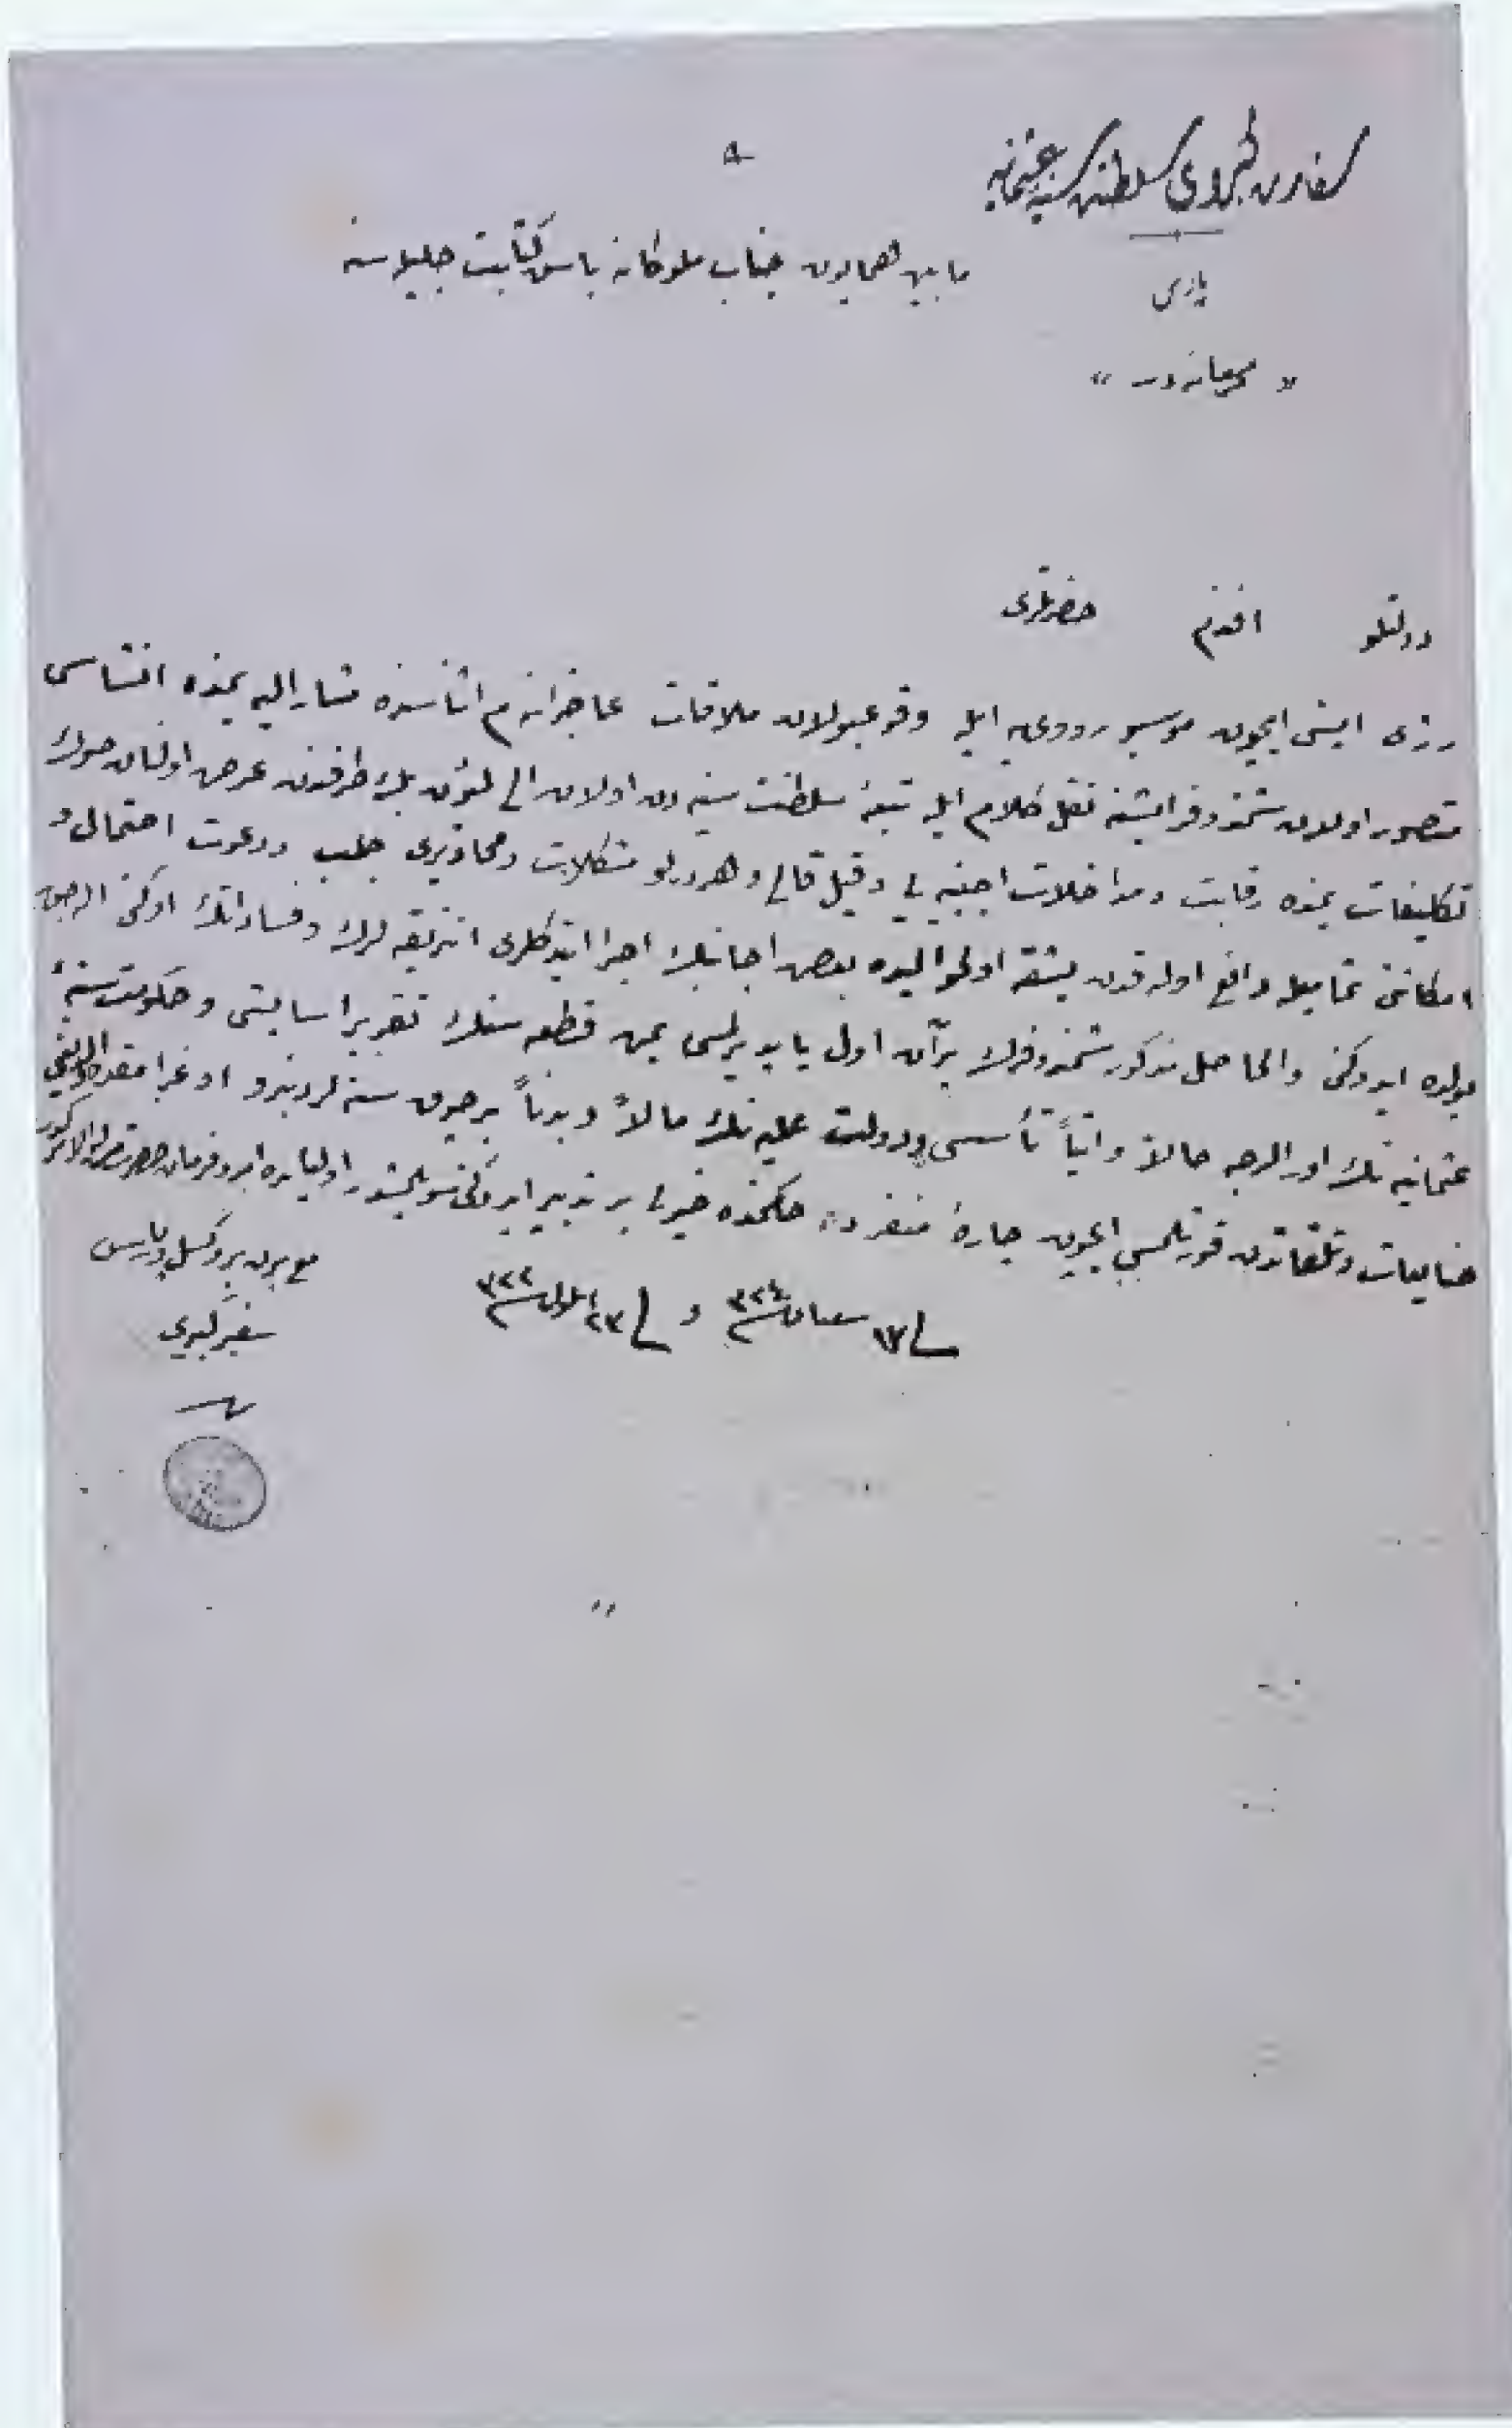 سفارت كبراى سلطنت سنيه عثمانيه
مابين همايون جناب ملوكانه باش كتابت جليله سنه
پاريس
« محرمانه در »
دولتلو افندم حضرتلرى
رژى ايشى ايچون موسيو رووييه ايله وقوعبولان ملاقات عاجزانه م اثناسنده مشار اليه يمنده انشاسى
متصور اولان شمندوفر ايشنه نقل كلام ايله تبعهٔ سلطنت سنيه دن اولان بك طرفندن عرض اولنان
تكليفات يمنده رقابت و مداخلات اجنبيه يى و قيل قالى و هر درلو مشكلات و محاذيرى جلب و دعوت احتمالى و
امكاننى تماميله دافع اولدقدن بشقه اولحواليده بعض اجانبك اجرا ايتدكلرى انتريقه لرك و فساداتك اوكنى الهجق
يولده ايدوكنى والحاصل مذكور شمندوفرك بر آن اول ياپديرلمسى يمن قطعه سنك تقرير اسايشى و حكومت سنيهٔ
عثمانيه نك اورالرجه حالاً و آتياً تأسسى و دولت عليه نك مالاً و بدناً برچوق سنه لردنبرو اوغرامقده اولديغى
ضايعات و تلفاتدن قورتلمسى ايچون چارهٔ منفرده حكمنده خيرلى بر تدبير ايدوكنى سويلمشدر اولبابده امر و فرمان حضرت من له الامركدر
فى ١٧ شعبان ٣٢٤ و فى ٢٣ ايلول ٣٢٢
پاريس
سفير كبيرى